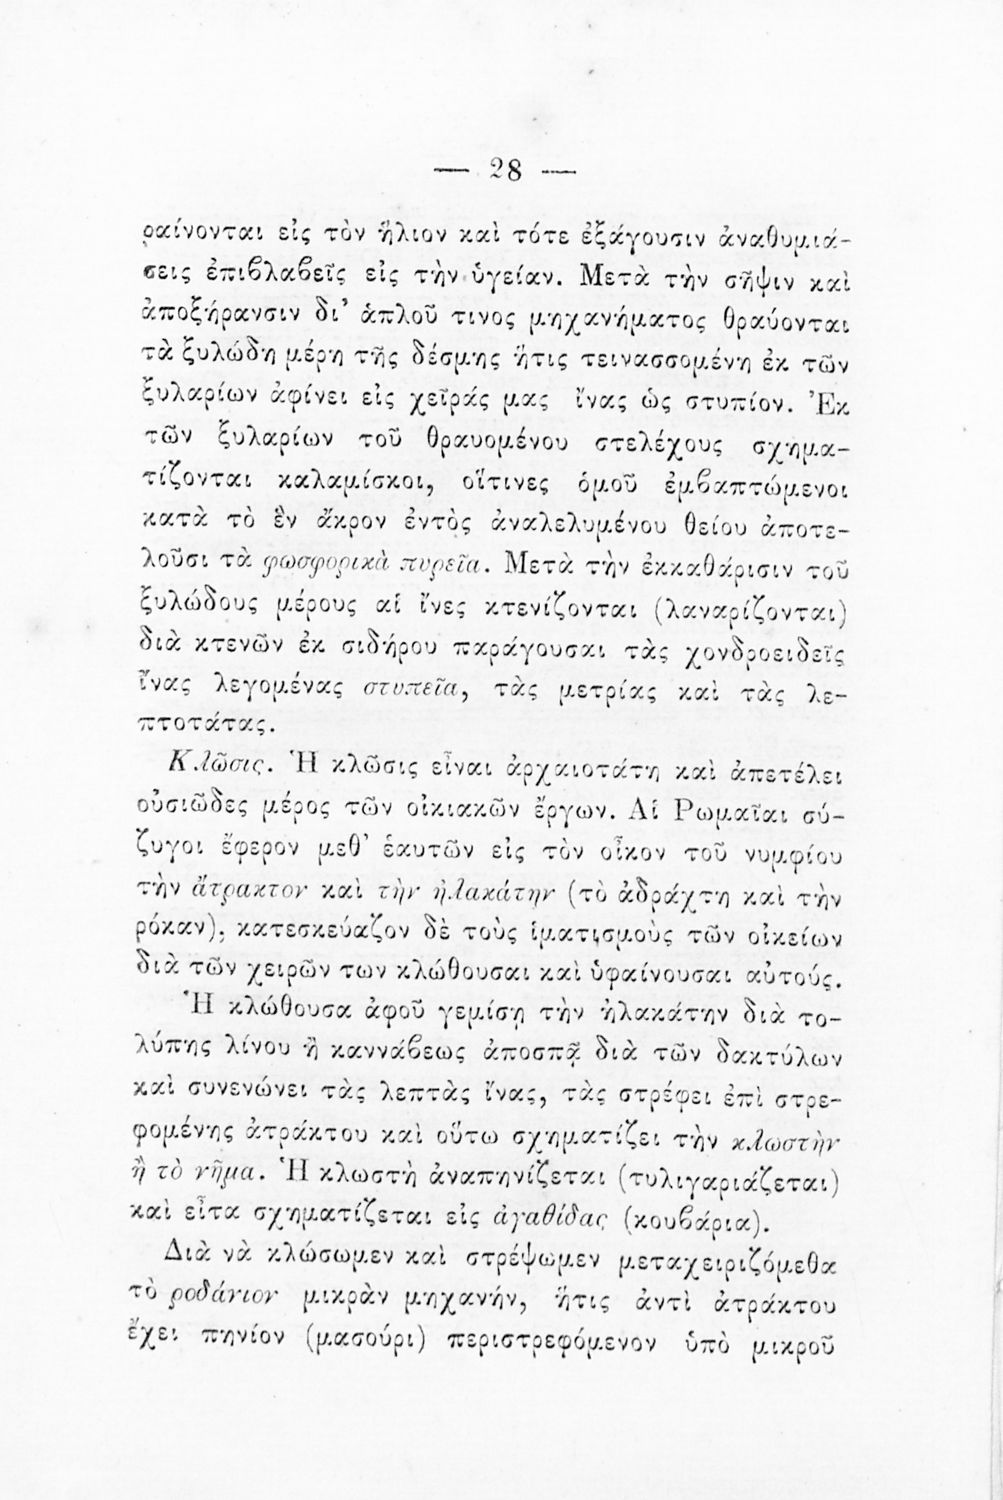 — 28 —
ραίνονται εἰς τὸν ἥλιον καὶ τότε ἐξάγουσιν ἀναθυμιά-
σεις ἐπιβλαβεῖς εἰς τὴν ὑγείαν. Μετὰ τὴν σῆψιν καὶ
ἀποξήρανσιν δι’ ἁπλοῦ τινος μηχανήματος θραύονται
τὰ ξυλώδη μέρη τῆς δέσμης ἥτις τεινασσομένη ἐκ τῶν
ξυλαρίων ἀφίνει εἰς χεῖράς μας ἵνας ὡς στυπίον. Ἐκ
τῶν ξυλαρίων τοῦ θραυομένου στελέχους σχημα-
τίζονται καλαμίσκοι, οἵτινες ὁμοῦ ἐμβαπτώμενοι
κατὰ τὸ ἓν ἄκρον ἐντὸς ἀναλελυμένου θείου ἀποτε-
λοῦσι τὰ φωσφορικὰ πυρεῖα. Μετὰ τὴν ἐκκαθάρισιν τοῦ
ξυλώδους μέρους αἱ ἵνες κτενίζονται (λαναρίζονται)
διὰ κτενῶν ἐκ σιδήρου παράγουσαι τὰς χονδροειδεῖς
ἵνας λεγομένας στυπεῖα, τὰς μετρίας καὶ τὰς λε-
πτοτάτας.
Κλῶσις. Ἡ κλῶσις εἶναι ἀρχαιοτάτη καὶ ἀπετέλει
οὐσιῶδες μέρος τῶν οἰκιακῶν ἔργων. Αἱ Ρωμαῖαι σύ-
ζυγοι ἔφερον μεθ’ ἑαυτῶν εἰς τὸν οἶκον τοῦ νυμφίου
τὴν ἄτρακτον καὶ τὴν ἠλακάτην (τὸ ἀδράχτη καὶ τὴν
ρόκαν), κατεσκεύαζον δὲ τοὺς ἱματισμοὺς τῶν οἰκείων
διὰ τῶν χειρῶν των κλώθουσαι καὶ ὑφαίνουσαι αὐτούς.
Ἡ κλώθουσα ἀφοῦ γεμίσῃ τὴν ἠλακάτην διὰ το-
λύπης λίνου ἢ καννάβεως ἀποσπᾷ διὰ τῶν δακτύλων
καὶ συνενώνει τὰς λεπτὰς ἵνας, τὰς στρέφει ἐπὶ στρε-
φομένης ἀτράκτου καὶ οὕτω σχηματίζει τὴν κλωστὴν
ἢ τὸ νῆμα. Ἡ κλωστὴ ἀναπηνίζεται (τυλιγαριάζεται)
καὶ εἶτα σχηματίζεται εἰς ἀγαθίδας (κουβάρια).
Διὰ νὰ κλώσωμεν καὶ στρέψωμεν μεταχειριζόμεθα
τὸ ροδάνιον μικρὰν μηχανήν, ἥτις ἀντὶ ἀτράκτου
ἔχει πηνίον (μασούρι) περιστρεφόμενον ὑπὸ μικροῦ